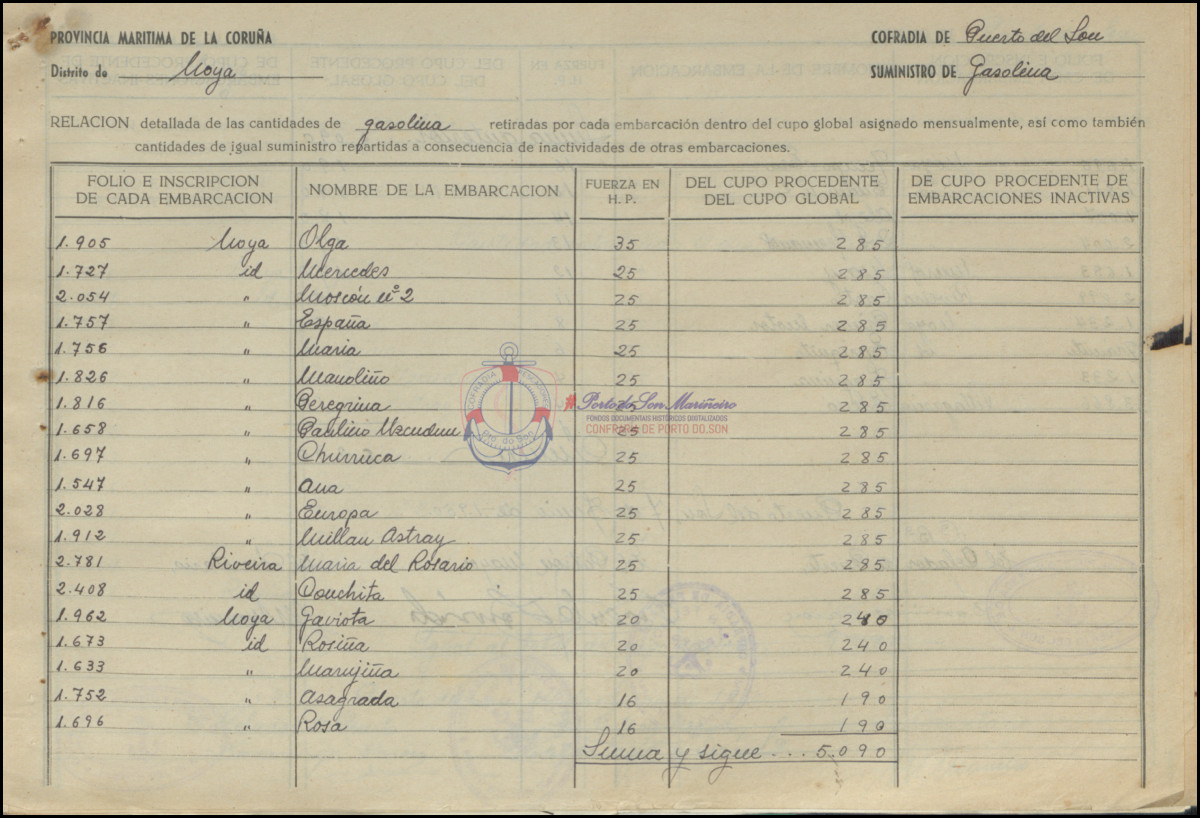 PROVINCIA MARITIMA DE LA CORUÑA
COFRADIA DE Puerto del Son
Distrito de Noya
SUMINISTRO DE Gasolina
RELACION detallada de las cantidades de gasolina retiradas por cada embarcación dentro del cupo global asignado mensualmente, así como también
cantidades de igual suministro repartidas a consecuencia de inactividades de otras embarcaciones.
FOLIO E INSCRIPCION DE CADA EMBARCACION NOMBRE DE LA EMBARCACION FUERZA EN H. P. DEL CUPO PROCEDENTE DEL CUPO GLOBAL DE CUPO PROCEDENTE DE EMBARCACIONES INACTIVAS
1.905 Noya Olga 35 285
1.727 id Mercedes 25 285
2.054 " Moscón nº 2 25 285
1.757 " España 25 285
1.756 " Maria 25 285
1.826 " Manoliño 25 285
1.816 " Peregrina 25 285
1.658 " Paulino Uzcudun 25 285
1.697 " Churruca 25 285
1.547 " Ana 25 285
2.028 " Europa 25 285
1.912 " Millan Astray 25 285
2.781 Riveira Maria del Rosario 25 285
2.408 id Conchita 25 285
1.962 Noya Gaviota 20 240
1.673 id Rosiña 20 240
1.633 " Marujiña 20 240
1.752 " Asagrada 16 190
1.696 " Rosa 16 190
Suma y sigue ... 5.090
COFRADIA
Pto. do Son
Porto do Son Mariñeiro
FONDOS DOCUMENTAIS HISTÓRICOS DIXITALIZADOS
CONFRARÍA DE PORTO DO SON